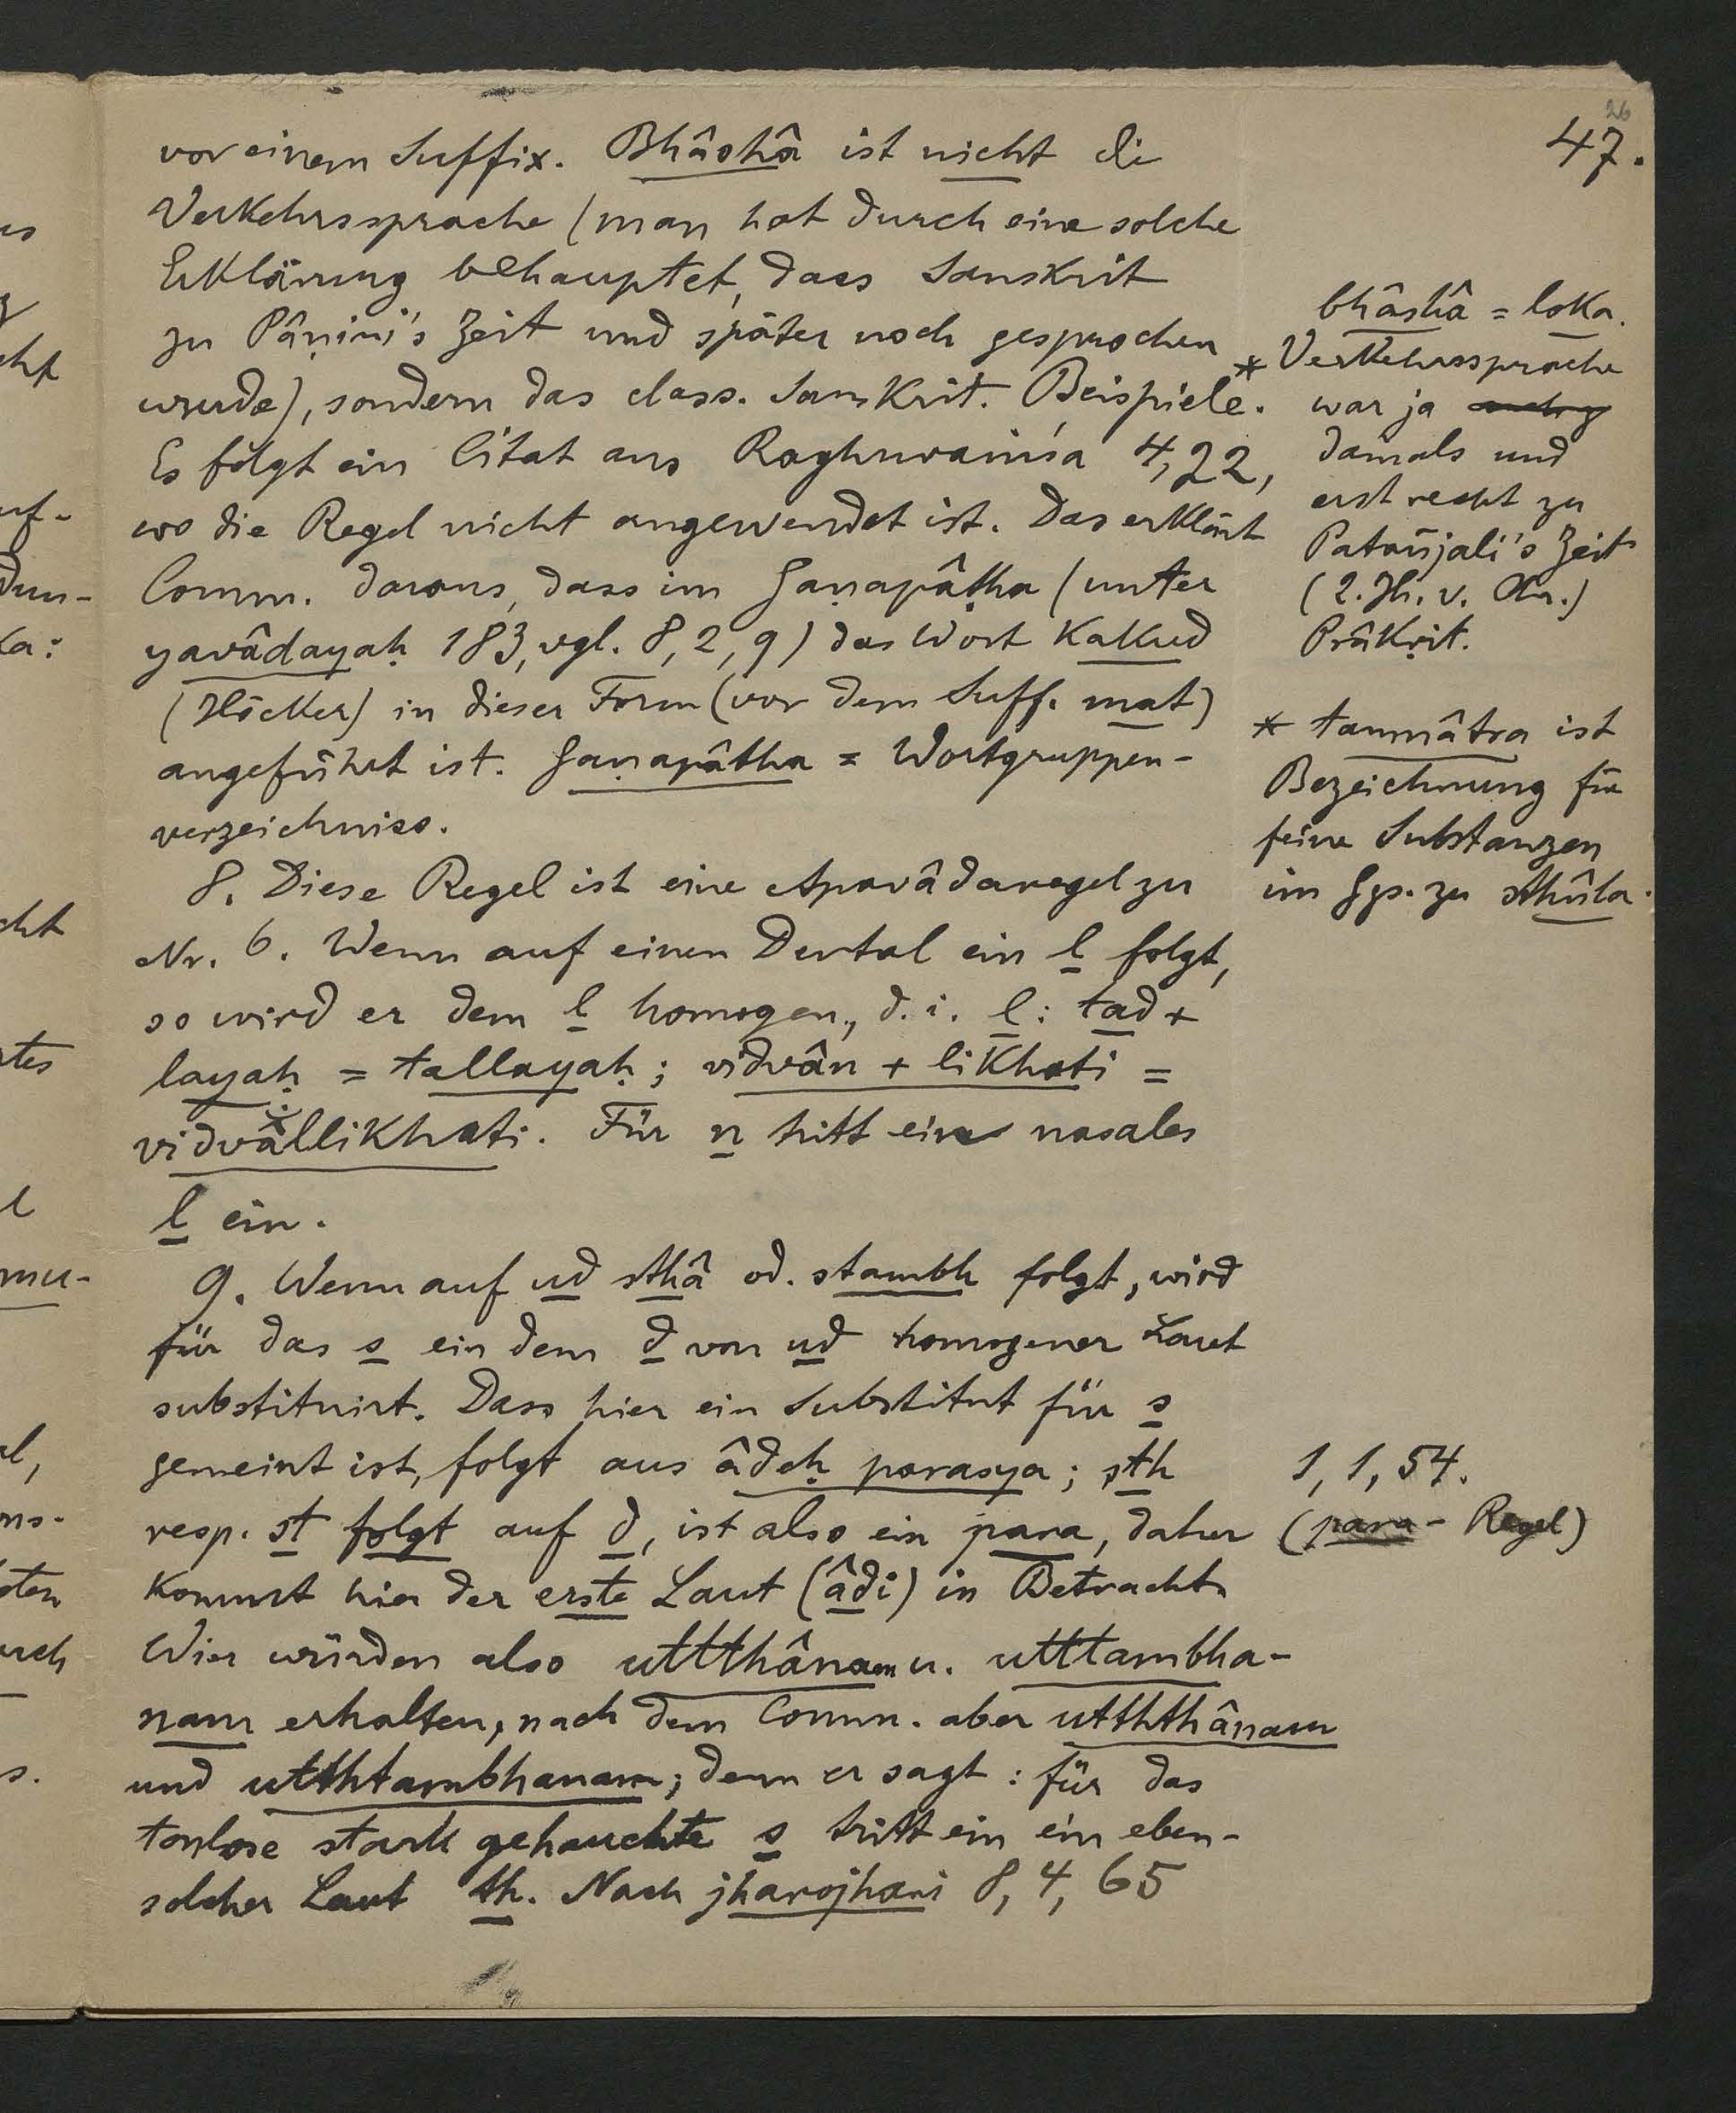 26
47.
vor einem Suffix. Bhâshâ ist nicht die
Verkehrssprache (man hat durch eine solche
Erklärung behauptet, dass Sanskrit
zu Pâṇini's Zeit und später noch gesprochen
wurde), sondern das class. Sanskrit. Beispiele.*
Es folgt ein Citat aus Raghuvaṁśa 4,22,
wo die Regel nicht angewendet ist. Das erklärt
Comm. daraus, dass im Gaṇapâṭha (unter
yavâdayaḥ 183, vgl. 8,2,9) das Wort kakud
(Höcker) in dieser Form (vor dem Suff. mat)
angeführt ist. Gaṇapâtha = Wortgruppen-
verzeichniss.
8. Diese Regel ist eine Apavâdaregel zu
Nr. 6. Wenn auf einen Dental ein l folgt,
so wird er dem l homogen, d. i. l: tad +
layaḥ = tallayaḥ; vidvân + likhati =
vidvâllikhati. Für n tritt ein nasales
l ein.
9. Wenn auf ud sthâ od. stambh folgt, wird
für das s ein dem d von ud homogener Laut
substituirt. Dass hier ein Substitut für s
gemeint ist, folgt aus âdeḥ parasya; sth
resp. st folgt auf d, ist also ein para, daher
kommt hier der erste Laut (âdi) in Betracht.
Wir würden also uttthânam u. utttambha-
nam erhalten, nach dem Comm. aber utththânam
und utthtambhanam; denn er sagt: für das
tonlose stark gehauchte s tritt ein ein eben-
solcher Laut th. Nach jharojhari 8, 4, 65
bhâshâ = loka.
Verkehrssprache
war ja
damals und
erst recht zu
Patañjali's Zeit
(2. Jh. v. Chr.)
Prâkṛit.
* tanmâtra ist
Bezeichnung für
feine Substanzen
im Ggs. zu sthûla.
1, 1, 54.
(para-Regel)